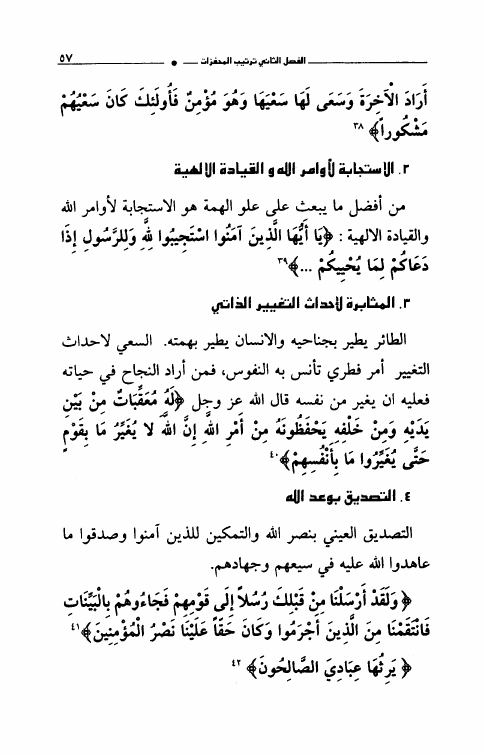 الفصل الثاني ترتيب المحفزات ٥٧
أَرَادَ الْآخِرَةَ وَسَعَى لَهَا سَعْيَهَا وَهُوَ مُؤْمِنٌ فَأُولَئِكَ كَانَ سَعْيُهُمْ
مَشْكُوراً﴾ ٣٨
٢. الاستجابة لأوامر الله و القيادة الالهية
من أفضل ما يبعث على علو الهمة هو الاستجابة لأوامر الله
والقيادة الالهية : ﴿يَا أَيُّهَا الَّذِينَ آمَنُوا اسْتَجِيبُوا لِلَّهِ وَلِلرَّسُولِ إِذَا
دَعَاكُمْ لِمَا يُحْيِيكُمْ ...﴾٣٩
٣. المثابرة لإحداث التغيير الذاتي
الطائر يطير بجناحيه والانسان يطير بهمته. السعي لاحداث
التغيير أمر فطري تأنس به النفوس، فمن أراد النجاح في حياته
فعليه ان يغير من نفسه قال الله عز وجل ﴿لَهُ مُعَقِّبَاتٌ مِنْ بَيْنِ
يَدَيْهِ وَمِنْ خَلْفِهِ يَحْفَظُونَهُ مِنْ أَمْرِ اللَّهِ إِنَّ اللَّهَ لا يُغَيِّرُ مَا بِقَوْمٍ
حَتَّى يُغَيِّرُوا مَا بِأَنْفُسِهِمْ﴾٤٠
٤. التصديق بوعد الله
التصديق العيني بنصر الله والتمكين للذين آمنوا وصدقوا ما
عاهدوا الله عليه في سيعهم وجهادهم.
﴿ وَلَقَدْ أَرْسَلْنَا مِنْ قَبْلِكَ رُسُلاً إِلَى قَوْمِهِمْ فَجَاءُوهُمْ بِالْبَيِّنَاتِ
فَانْتَقَمْنَا مِنَ الَّذِينَ أَجْرَمُوا وَكَانَ حَقّاً عَلَيْنَا نَصْرُ الْمُؤْمِنِينَ﴾٤١
﴿ يَرِثُهَا عِبَادِيَ الصَّالِحُونَ﴾ ٤٢